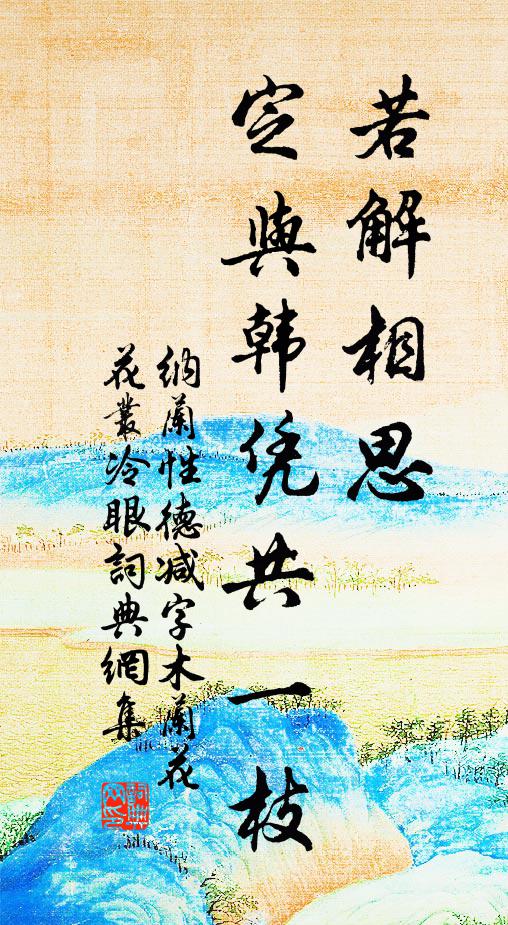 若解相思
定與韩凭共一枝
纳蘭性德减字木蘭花
花叢冷眼詞典網集